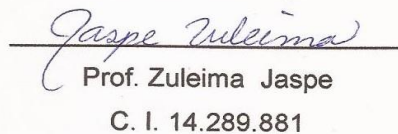 Jaspe Zuleima
Prof. Zuleima Jaspe
C. I. 14.289.881